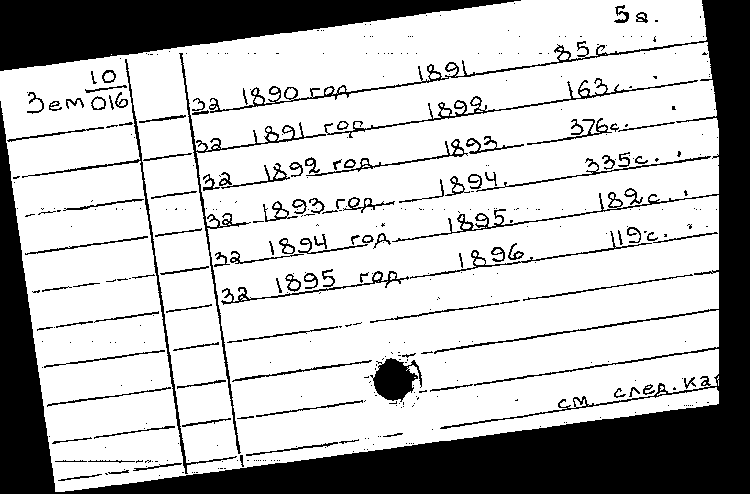 5а.
Зем 10/016
за 1890 год 1891. 85с.
за 1891 год. 1892. 163с.
за 1892 год. 1893. 376с.
за 1893 год. 1894. 335с.
за 1894 год. 1895. 182с.
за 1895 год. 1896. 119с.
см. след. кар